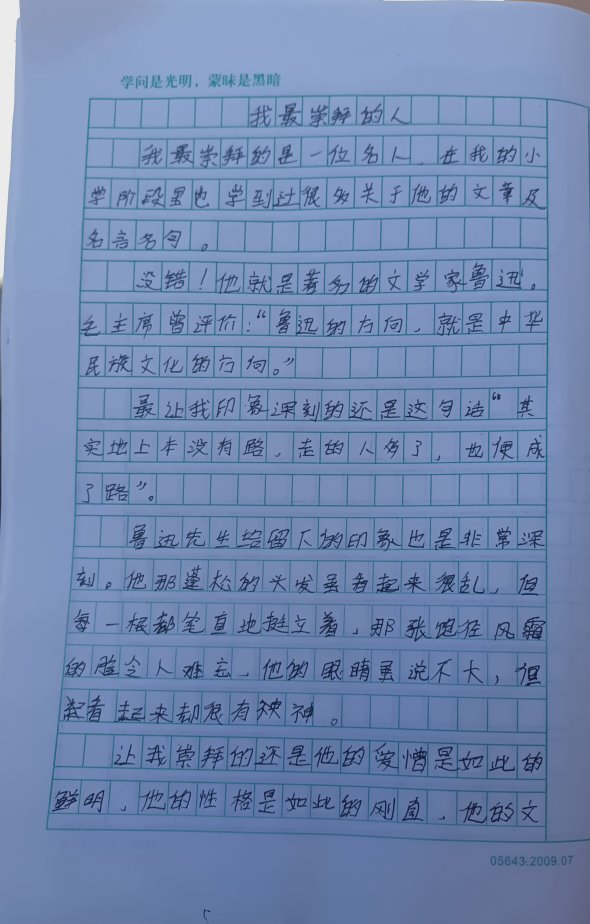 学问是光明，蒙昧是黑暗
我最崇拜的人
我最崇拜的是一位名人，在我的小
学阶段里也学到过很多关于他的文章及
名言名句。
没错！他就是著名的文学家鲁迅。
毛主席曾评价：“鲁迅的方向，就是中华
民族文化的方向。”
最让我印象深刻的还是这句话“其
实地上本没有路，走的人多了，也便成
了路”。
鲁迅先生给留下的印象也是非常深
刻。他那蓬松的头发虽看起来很乱，但
每一根都笔直地挺立着，那张饱经风霜
的脸令人难忘，他的眼睛虽说不大，但
看起来却很有神。
让我崇拜的还是他的爱憎是如此的
鲜明，他的性格是如此的刚直，他的文
05643.2009.07